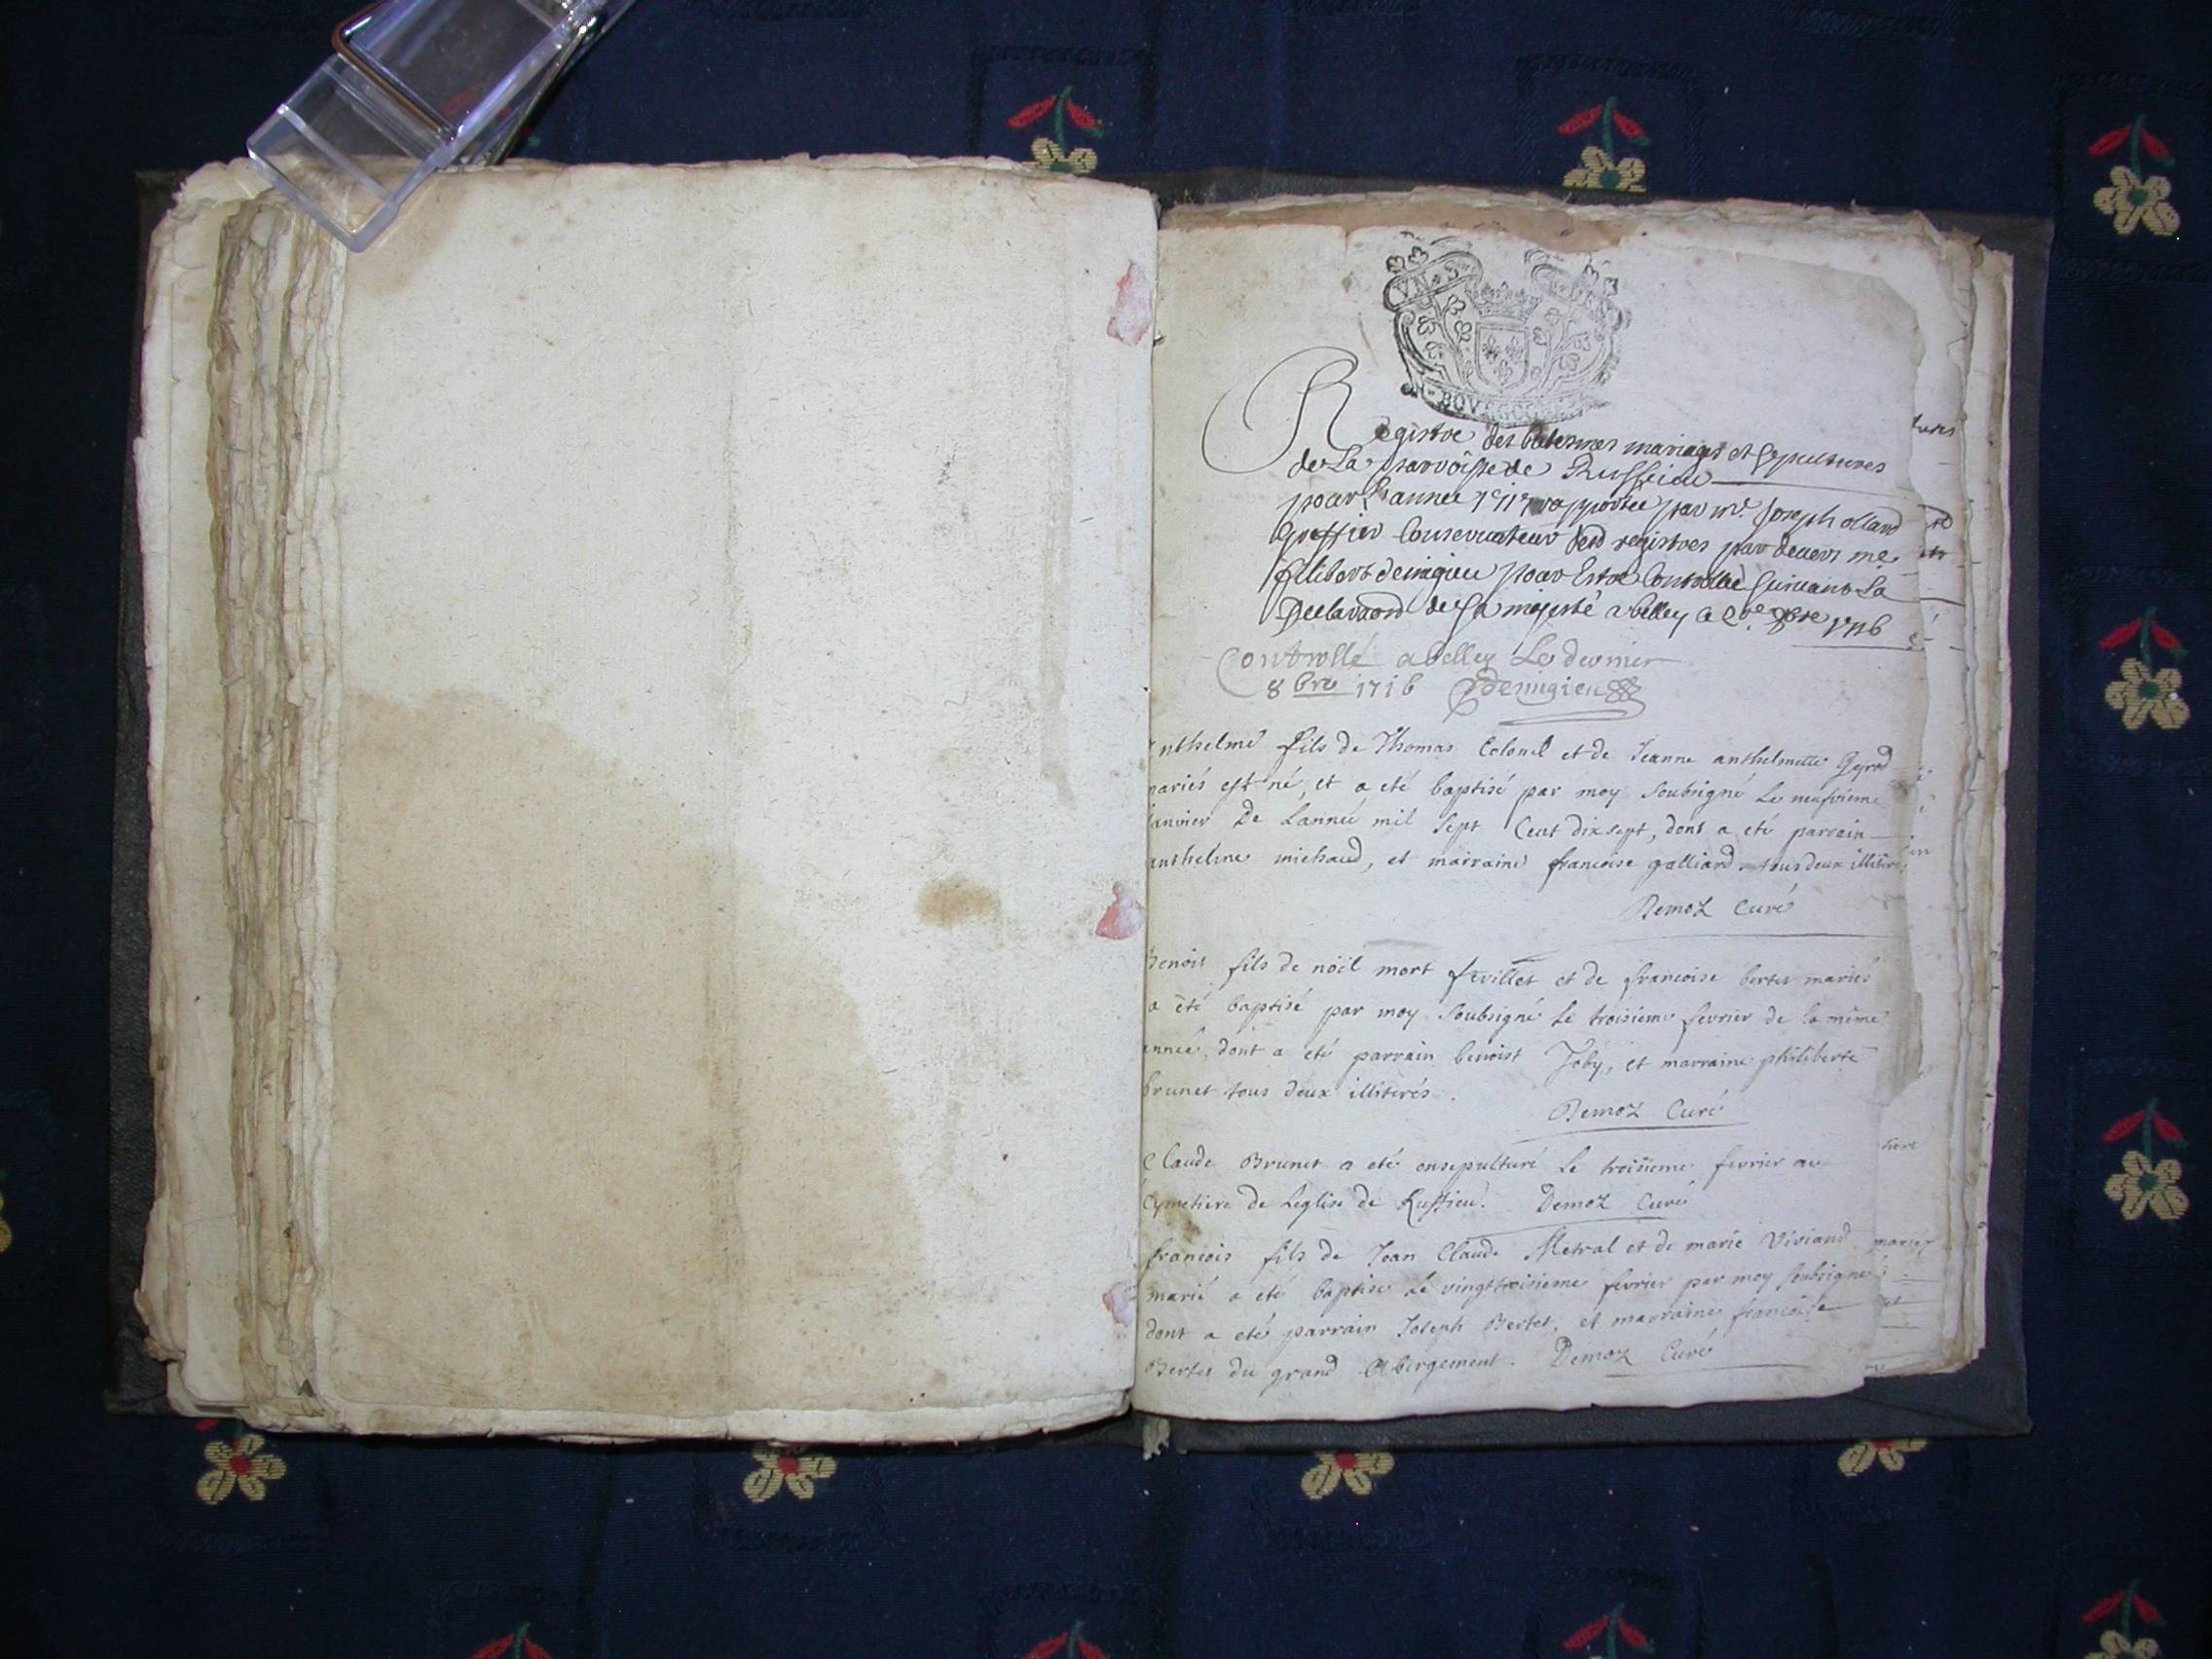 VN S
BOVRGOG
Registre des batesmes mariages et sepultures
de La parroisse de Ruffieu
pour L'annee 1717 rapportée par mr. Joseph olland
Greffier Conservateur desd registres par devers me
filibert demigieu pour Estre Controllé suivant La
Declaraon de sa majesté a belley ce 8bre 1716
Controllé a belley Le dernier
8 bre 1716 Demigieu
Anthelme fils de Thomas Colonel et de Jeanne anthelmette Gyrod
mariés est né, et a eté baptisé par moy soubsigné Le neufvieme
janvier De Lanneé mil sept Cent dix sept, dont a eté parrain
anthelme michaud, et mairaine francoise galliard tous deux illitirés
Demoz Curé
Benoit fils de nöel mort fevillet et de francoise bertet mariés
a eté baptisé par moy soubsigné Le troisieme fevrier de la même
année, dont a eté parrain benoist Joby, et marraine philiberte
brunet tous deux illitirés.
Demoz Curé
Claude Brunet a eté ensepulturé Le troisieme fevrier au
Cymetiere de Leglise de Ruffieu. Demoz Curé
francois fils de Jean Claude Metral et de marie Viviand
marié a eté baptisé Le vingttroisieme fevrier par moy soubsigné
dont a eté parrain Joseph Bertet, et marraine francoise
Bertet du grand Abergement. Demoz Curé